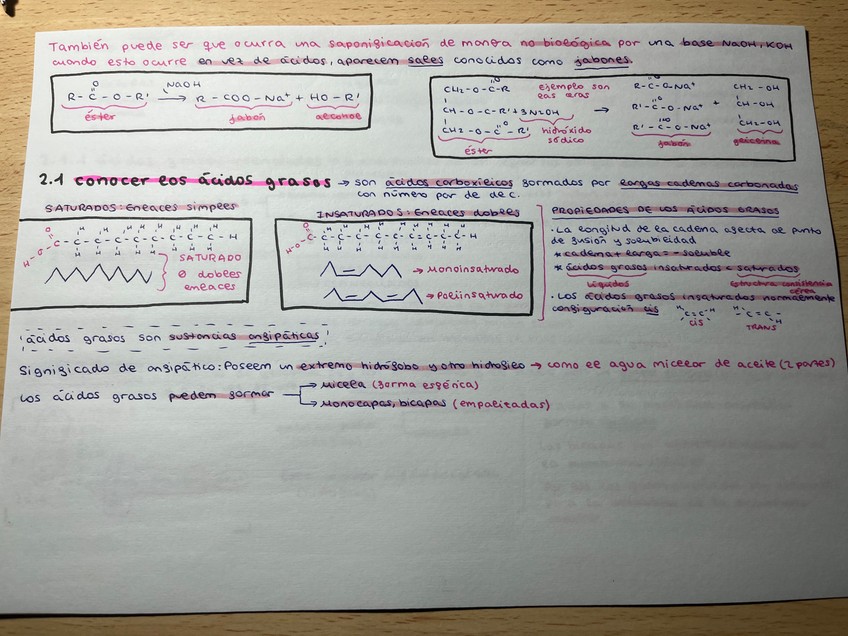 También puede ser que ocurra una saponificación de manera no biológica por una base NaOH, KOH
cuando esto ocurre en vez de ácidos, aparecen sales conocidos como jabones.
NaOH
R - C - O - R' → R - COO - Na⁺ + HO - R'
éster jabón alcohol
CH₂ - O - C - R
CH - O - C - R' + 3 NaOH →
CH₂ - O - C - R'
éster
ejemplo son las ceras
hidróxido sódico
R - C - O - Na⁺
R' - C - O - Na⁺
R' - C - O - Na⁺
jabón
CH₂ - OH
CH - OH
CH₂ - OH
glicerina
2.1 conocer los ácidos grasos → son ácidos carboxílicos formados por largas cadenas carbonadas
con número par de de C.
SATURADOS: Enlaces simples
H - O - C - C - C - C - C - C - C - C - C - H
SATURADO
0 dobles
enlaces
INSATURADOS: Enlaces dobles
H - O - C - C - C - C - C - C - C - C - C - H
→ Monoinsaturado
→ Poliinsaturado
PROPIEDADES DE LOS ÁCIDOS GRASOS
· La longitud de la cadena afecta al punto
de fusión y solubilidad
* cadena + larga = - soluble
* ácidos grasos insaturados - saturados
líquidos estructura consistencia
cérea
· Los ácidos grasos insaturados normalmente
configuración cis
H C = C H
cis
H C = C H
TRANS
ácidos grasos son sustancias anfipáticas
Significado de anfipático: Poseen un extremo hidrófobo y otro hidrofílico → como el agua micelar de aceite (2 partes)
Los ácidos grasos pueden formar → Micela (forma esférica)
→ Monocapas, bicapas (empalizadas)